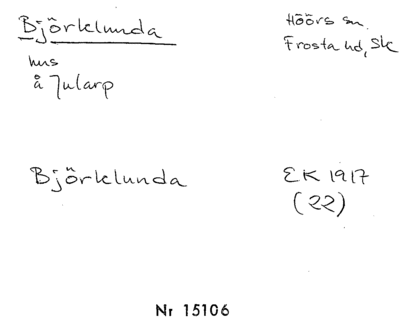 Björklunda
Höörs sn.
Frosta hd, Sk
hus
å Jularp
Björklunda
EK 1917
(22)
Nr 15106